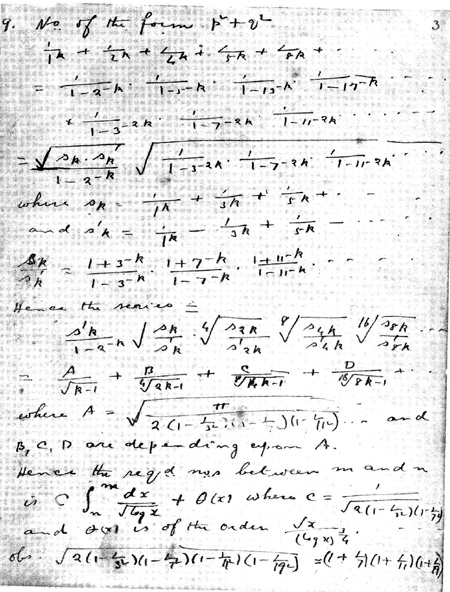 9. No of the form p² + q² 3
1/1^k + 1/2^k + 1/4^k + 1/5^k + 1/8^k + · · ·
= 1/(1-2^-k) · 1/(1-5^-k) · 1/(1-13^-k) · 1/(1-17^-k) · · ·
× 1/(1-3^-2k) · 1/(1-7^-2k) · 1/(1-11^-2k) · · ·
= √(s_k · s'_k)/(1-2^-k) √(1/(1-3^-2k) · 1/(1-7^-2k) · 1/(1-11^-2k) · · ·)
where s_k = 1/1^k + 1/3^k + 1/5^k + · · ·
and s'_k = 1/1^k - 1/3^k + 1/5^k - · · ·
s_k/s'_k = (1+3^-k)/(1-3^-k) · (1+7^-k)/(1-7^-k) · (1+11^-k)/(1-11^-k) · · ·
Hence the series =
s'_k/(1-2^-k) √(s_k/s'_k) · ⁴√(s_2k/s'_2k) ⁸√(s_4k/s'_4k) ¹⁶√(s_8k/s'_8k) · · ·
= A/√(k-1) + B/⁴√(2k-1) + C/⁸√(4k-1) + D/¹⁶√(8k-1) + · · ·
where A = √(π/(2(1-1/3²)(1-1/7²)(1-1/11²) · · ·)) and
B, C, D are depending upon A.
Hence the reqd nos between m and n
is C ∫_n^m dx/√(log x) + θ(x) where C = 1/√(2(1-1/3²)(1-1/7²)
and θ(x) is of the order √x/(log x)^¾.
obs √(2(1-1/3²)(1-1/7²)(1-1/11²)(1-1/19²)) = (1+1/7)(1+1/11)(1+1/19)